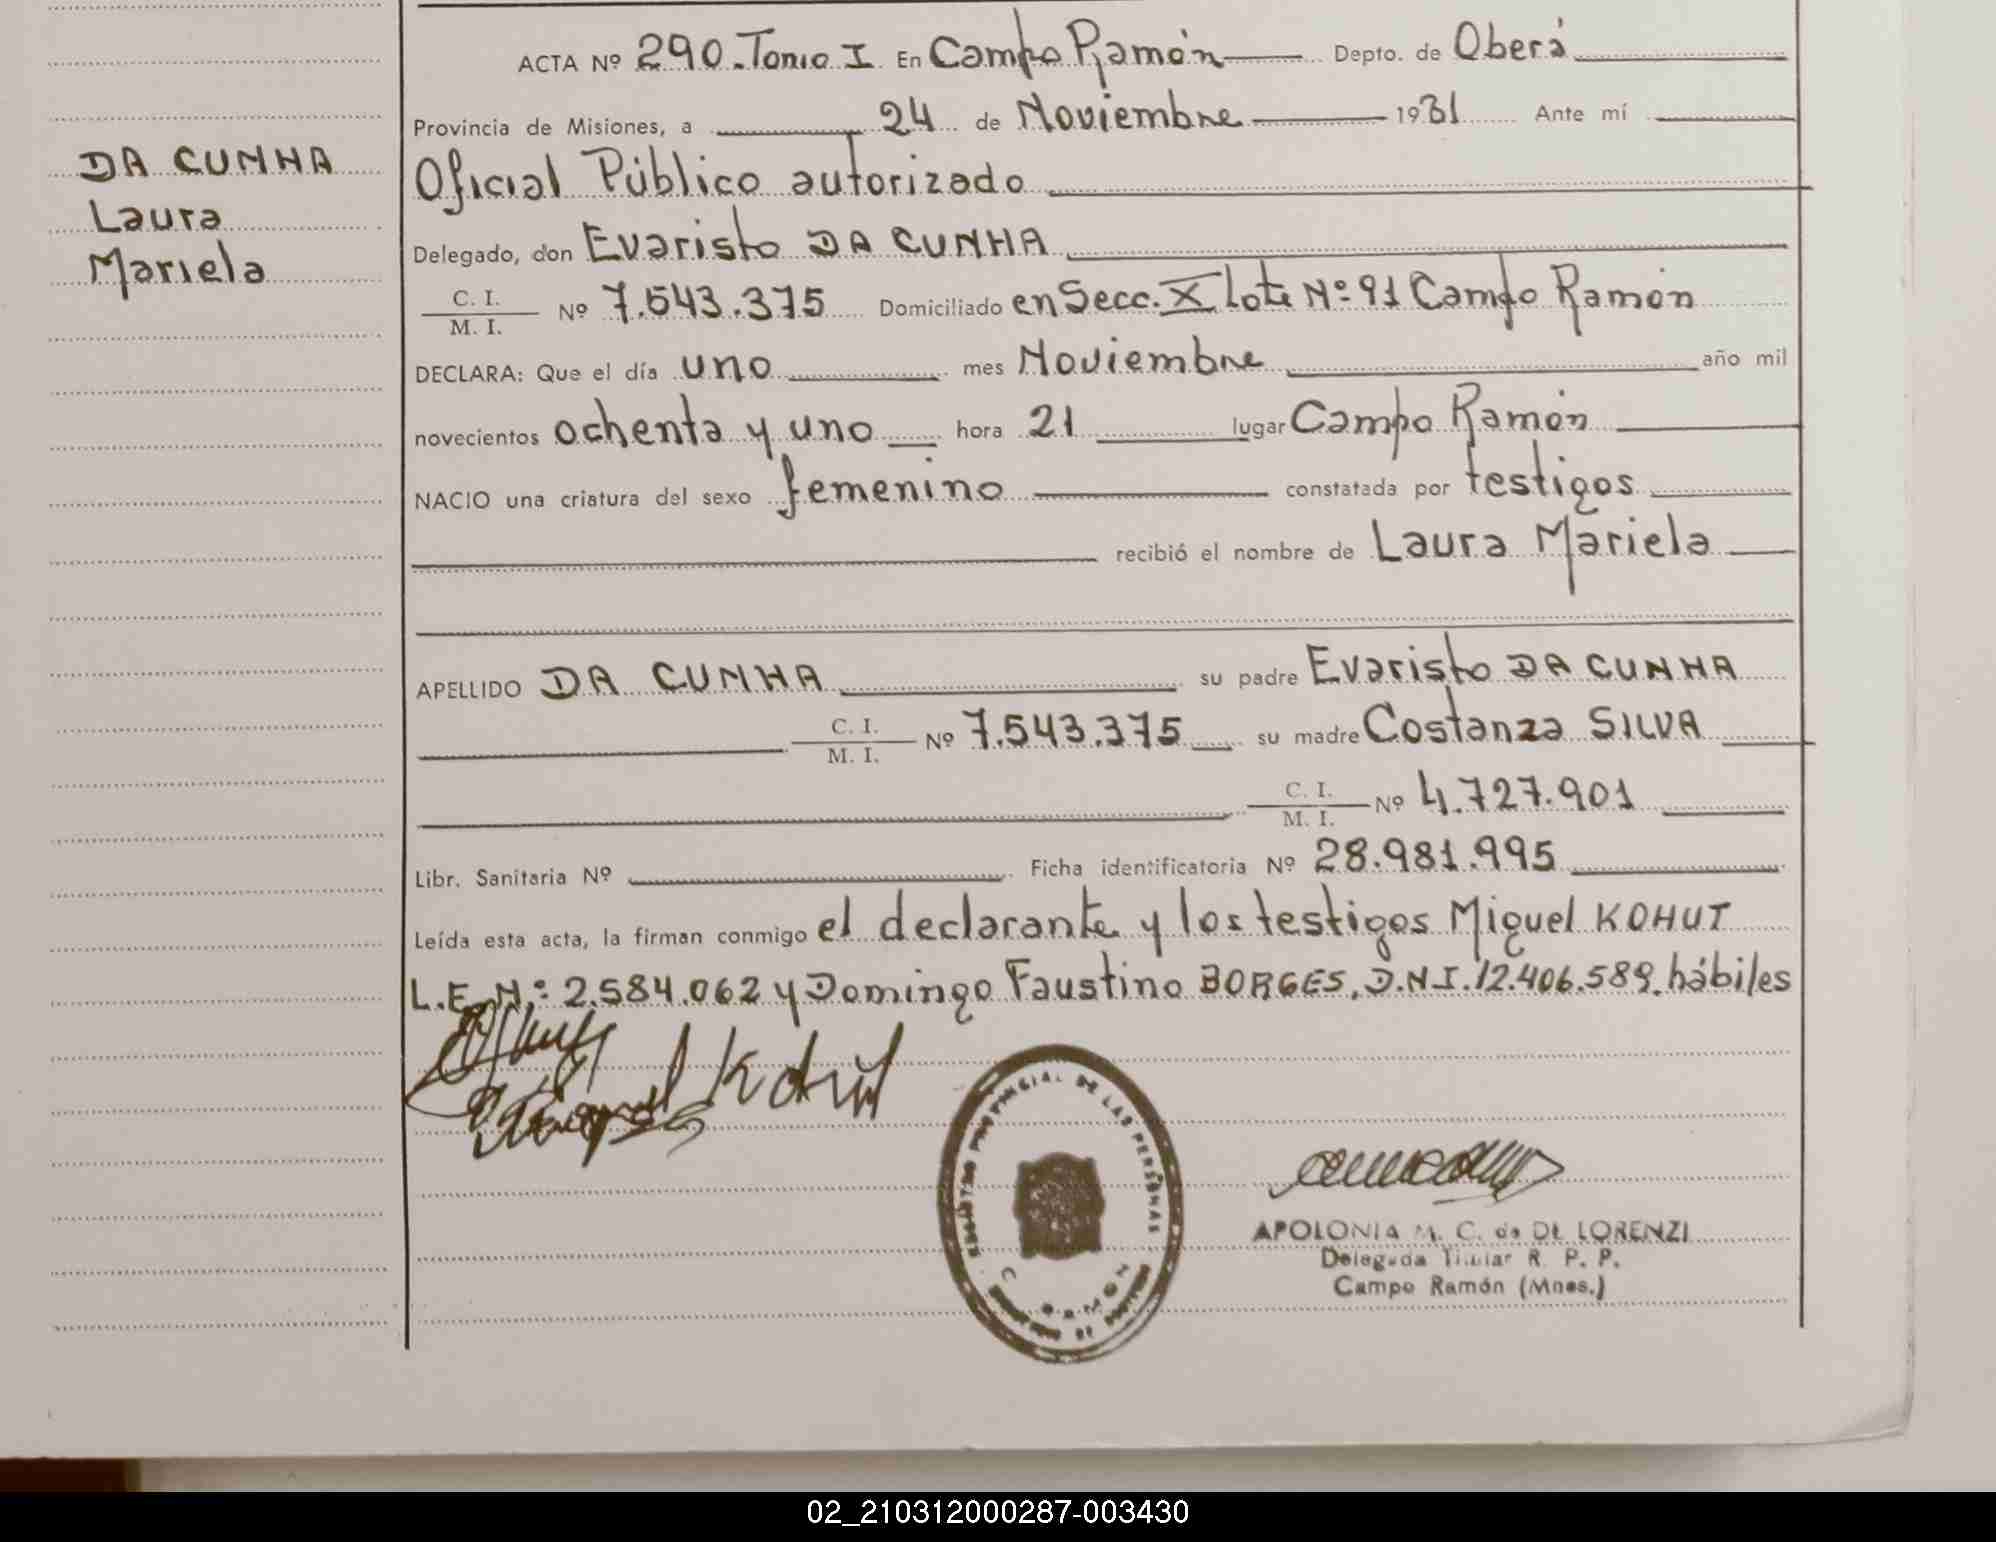 ACTA Nº 290. Tomo I En Campo Ramón Depto. de Oberá
Provincia de Misiones, a 24 de Noviembre 1981 Ante mí
Oficial Público autorizado
Delegado, don Evaristo DA CUNHA
C. I.
M. I.
Nº 7.543.375 Domiciliado en Secc. X lote Nº 91 Campo Ramón
DECLARA: Que el día uno mes Noviembre año mil
novecientos ochenta y uno hora 21 lugar Campo Ramón
NACIO una criatura del sexo femenino constatada por testigos
recibió el nombre de Laura Mariela
APELLIDO DA CUNHA su padre Evaristo DA CUNHA
C. I.
M. I.
Nº 7.543.375 su madre Costanza SILVA
C. I.
M. I.
Nº 4.727.901
Libr. Sanitaria Nº Ficha identificatoria Nº 28.981.995
Leída esta acta, la firman conmigo el declarante y los testigos Miguel KOHUT
L.E.N.: 2.584.062 y Domingo Faustino BORGES, D.N.I. 12.406.589. hábiles
DA CUNHA
Laura
Mariela
PROVINCIAL DE LAS PERSONAS
APOLONIA M. C. de DE LORENZI
Delegada Titular R. P. P.
Campo Ramón (Mnes.)
02_210312000287-003430